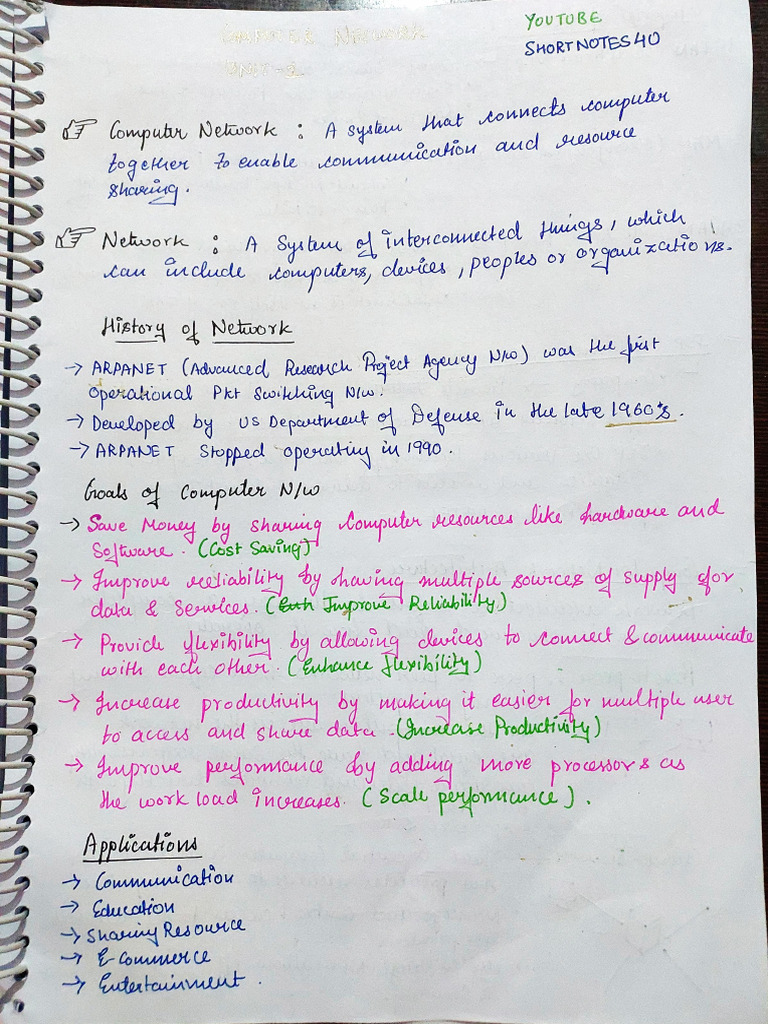 YOUTUBE
SHORTNOTES40
COMPUTER NETWORK
UNIT-1
Computer Network : A system that connects computer
together to enable communication and resource
sharing.
Network : A System of interconnected things, which
can include computers, devices, peoples or organizations.
History of Network
→ ARPANET (Advanced Research Project Agency N/w) was the first
operational Pkt Switching N/w.
→ Developed by US Department of Defense in the late 1960's.
→ ARPANET Stopped operating in 1990.
Goals of Computer N/w
→ Save Money by sharing Computer resources like hardware and
Software. (Cost Saving)
→ Improve reliability by having multiple sources of supply for
data & Services. (Improve Reliability)
→ Provide flexibility by allowing devices to connect & communicate
with each other. (Enhance flexibility)
→ Increase productivity by making it easier for multiple user
to access and share data. (Increase Productivity)
→ Improve performance by adding more processors as
the work load increases. (Scale performance).
Applications
→ Communication
→ Education
→ Sharing Resource
→ E-Commerce
→ Entertainment.